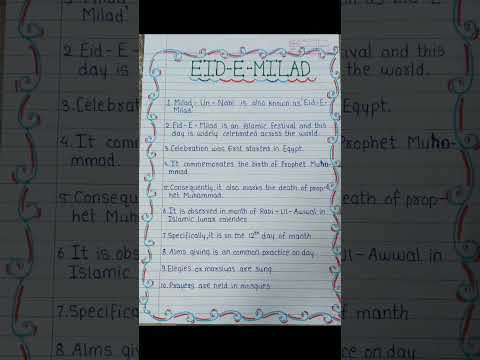 EID-E-MILAD
1. Milad-Un-Nabi is also known as 'Eid-E-
Milad'
2. Eid-E-Milad is an Islamic Festival and this
day is widely celebrated across the world.
3. Celebration was first started in Egypt.
4. It commemorates the birth of Prophet Muha-
mmad.
5. Consequently, it also marks the death of prop-
het Muhammad.
6. It is observed in month of Rabi-Ul-Awwal in
Islamic lunar calender
7. Specifically, it is on the 12th day of manth
8. Alms giving is an common practice on day
9. Elegies or marsiyas are sung
10. Prayers are held in mosques